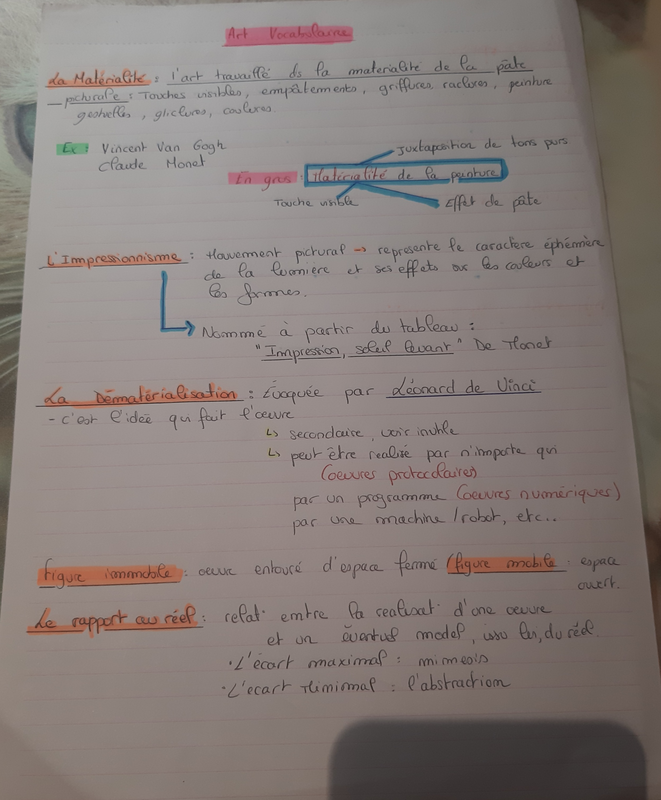 Art Vocabulaire
La Matérialité : l'art travaillé ds la materialité de la pâte
— picturale : Touches visibles, empâtements, griffures, raclures, peinture
gestuelles, gliclures, coulures.
Ex : Vincent Van Gogh
Claude Monet
Juxtaposition de tons purs
En gros : Matérialité de la peinture
Touche visible
Effet de pâte
L'Impressionnisme : Mouvement pictural → représente le caractère éphémère
de la lumière et ses effets sur les couleurs et
les formes.
Nommé à partir du tableau :
"Impression, soleil levant" De Monet
La Dématérialisation : Évoquée par Léonard de Vinci
- c'est l'idée qui fait l'oeuvre
↳ secondaire, voir inutile
↳ peut être realisé par n'importe qui
(oeuvres protocolaires)
par un programme (oeuvres numériques)
par une machine/robot, etc..
Figure immobile : oeuvre entouré d'espace fermé / figure mobile : espace
ouvert.
Le rapport au réel : relat° entre la realisat° d'une oeuvre
et un éventuel model, issu lui, du réel.
• L'écart maximal : mimesis
• L'écart Minimal : l'abstraction